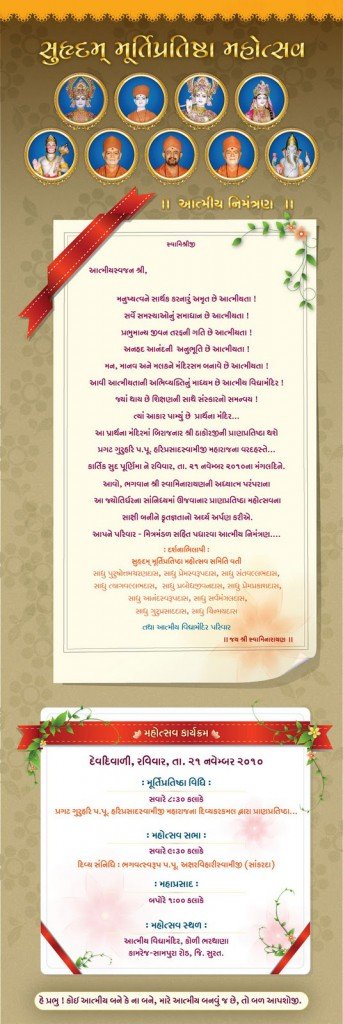 સુહૃદમ્ મૂર્તિપ્રતિષ્ઠા મહોત્સવ
॥ આત્મીય નિમંત્રણ ॥
સ્વામિશ્રીજી
આત્મીયસ્વજન શ્રી,
મનુષ્યત્વને સાર્થક કરનારું અમૃત છે આત્મીયતા !
સર્વે સમસ્યાઓનું સમાધાન છે આત્મીયતા !
પ્રભુમાન્ય જીવન તરફની ગતિ છે આત્મીયતા !
અનહદ આનંદની અનુભૂતિ છે આત્મીયતા !
મન, માનવ અને મલકને મંદિરસમ બનાવે છે આત્મીયતા !
આવી આત્મીયતાની અભિવ્યક્તિનું માધ્યમ છે આત્મીય વિદ્યામંદિર !
જ્યાં થાય છે શિક્ષણની સાથે સંસ્કારનો સમન્વય !
ત્યાં આકાર પામ્યું છે પ્રાર્થના મંદિર...
આ પ્રાર્થના મંદિરમાં બિરાજનાર શ્રી ઠાકોરજીની પ્રાણપ્રતિષ્ઠા થશે
પ્રગટ ગુરુહરિ પ.પૂ. હરિપ્રસાદસ્વામીજી મહારાજના વરદહસ્તે...
કાર્તિક સુદ પૂર્ણિમા ને રવિવાર, તા. ૨૧ નવેમ્બર ૨૦૧૦ના મંગલદિને.
આવો, ભગવાન શ્રી સ્વામિનારાયણની અધ્યાત્મ પરંપરાના
આ જ્યોતિર્ધરના સાંનિધ્યમાં ઊજવાનાર પ્રાણપ્રતિષ્ઠા મહોત્સવના
સાક્ષી બનીને કૃતજ્ઞતાનો અર્ઘ્ય અર્પણ કરીએ.
આપને પરિવાર - મિત્રમંડળ સહિત પધારવા આત્મીય નિમંત્રણ....
: દર્શનાભિલાષી :
સુહૃદમ્ મૂર્તિપ્રતિષ્ઠા મહોત્સવ સમિતિ વતી
સાધુ પુરુષોત્તમચરણદાસ, સાધુ પ્રેમસ્વરૂપદાસ, સાધુ સંતવલ્લભદાસ,
સાધુ ત્યાગવલ્લભદાસ, સાધુ પ્રબોધજીવનદાસ, સાધુ પ્રેમપ્રકાશદાસ,
સાધુ આનંદસ્વરૂપદાસ, સાધુ સર્વમંગલદાસ,
સાધુ ગુરુપ્રસાદદાસ, સાધુ ચિન્મયદાસ
તથા આત્મીય વિદ્યામંદિર પરિવાર
॥ જય શ્રી સ્વામિનારાયણ ॥
મહોત્સવ કાર્યક્રમ
દેવદિવાળી, રવિવાર, તા. ૨૧ નવેમ્બર ૨૦૧૦
: મૂર્તિપ્રતિષ્ઠા વિધિ :
સવારે ૮:૩૦ કલાકે
પ્રગટ ગુરુહરિ પ.પૂ. હરિપ્રસાદસ્વામીજી મહારાજના દિવ્યકરકમલ દ્વારા પ્રાણપ્રતિષ્ઠા...
: મહોત્સવ સભા :
સવારે ૯:૩૦ કલાકે
દિવ્ય સંનિધિ : ભગવત્સ્વરૂપ પ.પૂ. અક્ષરવિહારીસ્વામીજી (સાંકરદા)
: મહાપ્રસાદ :
બપોરે ૧:૦૦ કલાકે
: મહોત્સવ સ્થળ :
આત્મીય વિદ્યામંદિર, કોળી ભરથાણા
કામરેજ-સામપુરા રોડ, જિ. સુરત.
હે પ્રભુ ! કોઈ આત્મીય બને કે ના બને, મારે આત્મીય બનવું જ છે, તો બળ આપશોજી.